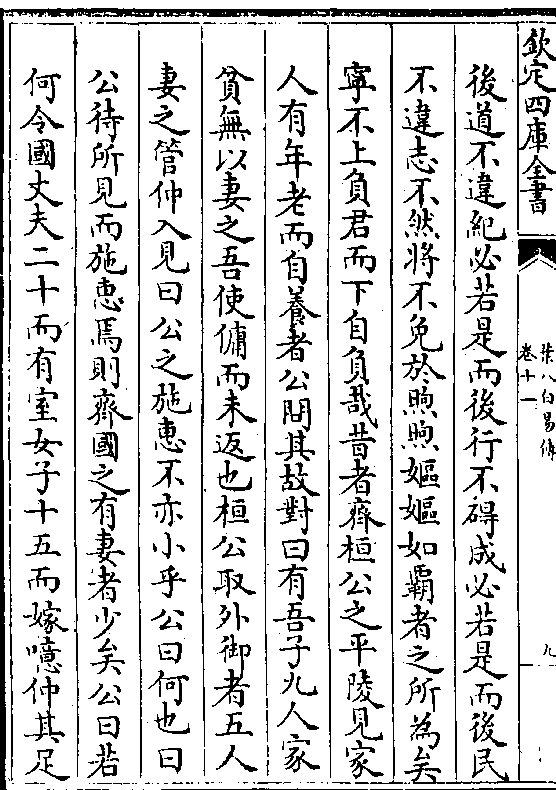 欽定四庫全書
葉八白易傳
卷十一
九
後道不違紀必若是而後行不碍成必若是而後民
不違志不然將不免於煦煦嫗嫗如霸者之所為矣
寧不上負君而下自負哉昔者齊桓公之平陵見家
人有年老而自養者公問其故對曰有吾子九人家
貧無以妻之吾使傭而未返也桓公取外御者五人
妻之管仲入見曰公之施惠不亦小乎公曰何也曰
公待所見而施惠焉則齊國之有妻者少矣公曰若
何令國丈夫二十而有室女子十五而嫁噫仲其足